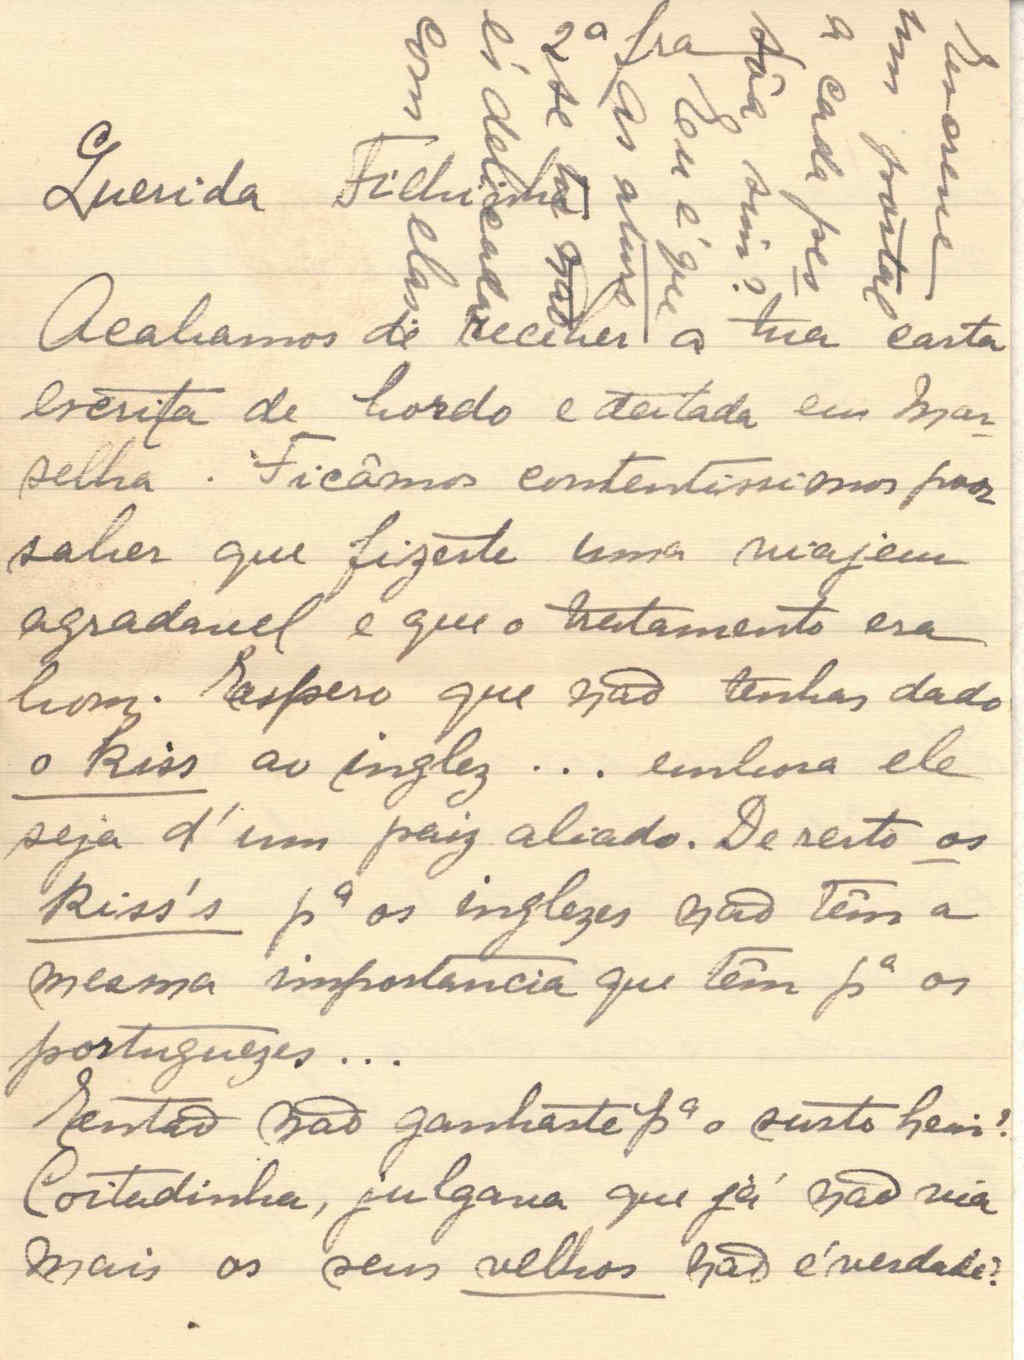 2ª fra
Querida
Acabamos de receber a tua carta
escrita de bordo e deitada em Mar-
selha. Ficâmos contentissimos por
saber que fizeste uma viajem
agradavel e que o tratamento era
bom. Espero que não tenhas dado
o Kiss ao inglez ... embora ele
seja d'um paiz aliado. De resto os
Kiss's pª os inglezes não têm a
mesma importancia que têm pª os
portuguezes ...
Então não ganhaste pª o susto hein?
Coitadinha, julgava que já não via
mais os seus velhos não é verdade?
Escreve
um postal
a cada pes
sôa sim?
Eu é que
as aturo
e se tu não
és delicada
com elas